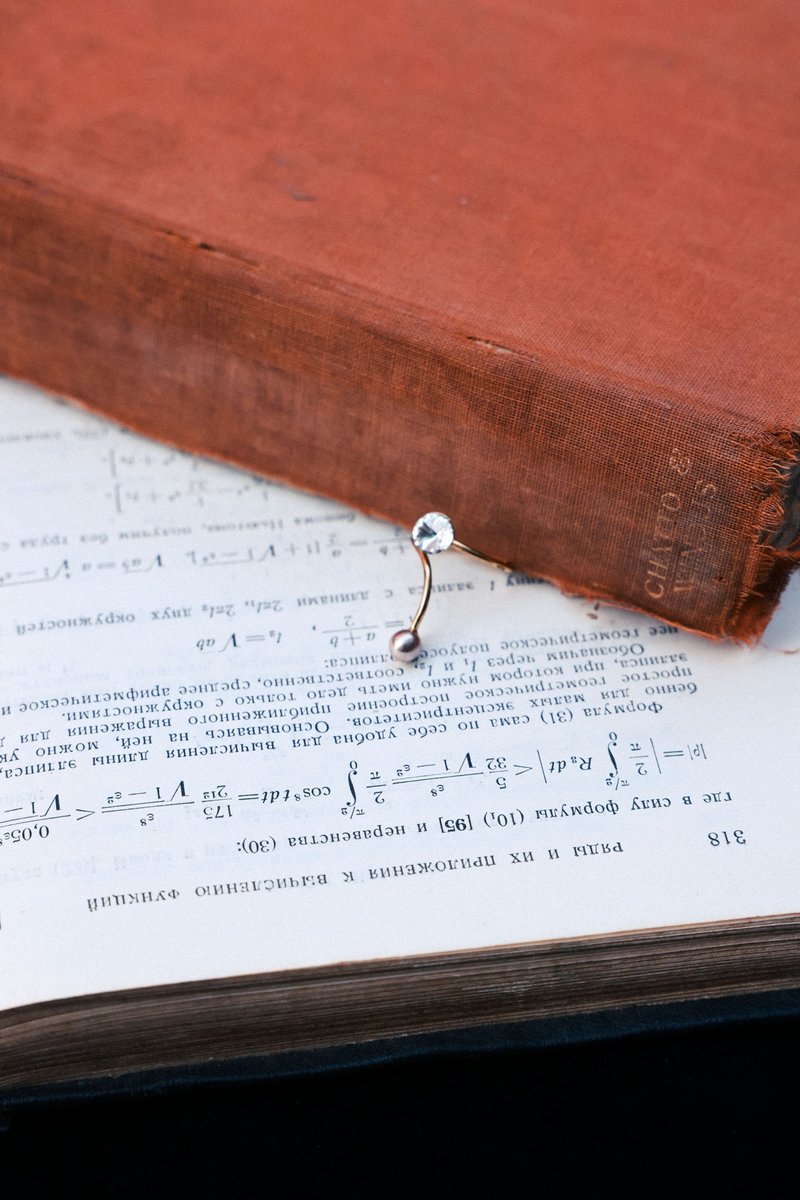 CHATTO &
WINDUS
318
РЯДЫ И ИХ ПРИЛОЖЕНИЯ К ВЫЧИСЛЕНИЮ ФУНКЦИЙ
где в силу формулы (10₁) [95] и неравенства (30):
|ρ| = |2/π ∫₀^{π/2} R₃ dt| < 5/32 ε⁸/√1 — ε² 2/π ∫₀^{π/2} cos⁸ t dt = 175/2¹² ε⁸/√1 — ε² < 0,05ε⁸/√1 —
Формула (31) сама по себе удобна для вычисления длины эллипса,
бенно для малых эксцентриситетов. Основываясь на ней, можно ук
простое геометрическое построение приближенного выражения для д
эллипса, при котором нужно иметь дело только с окружностями.
Обозначим через l₁ и l₂, соответственно, среднее арифметическое и
нее геометрическое полуосей эллипса:
= a + b/2, l₂ = √ab
l эллипса с длинами 2πl₁, 2πl₂ двух окружностей
бинома Ньютона, получим без труда